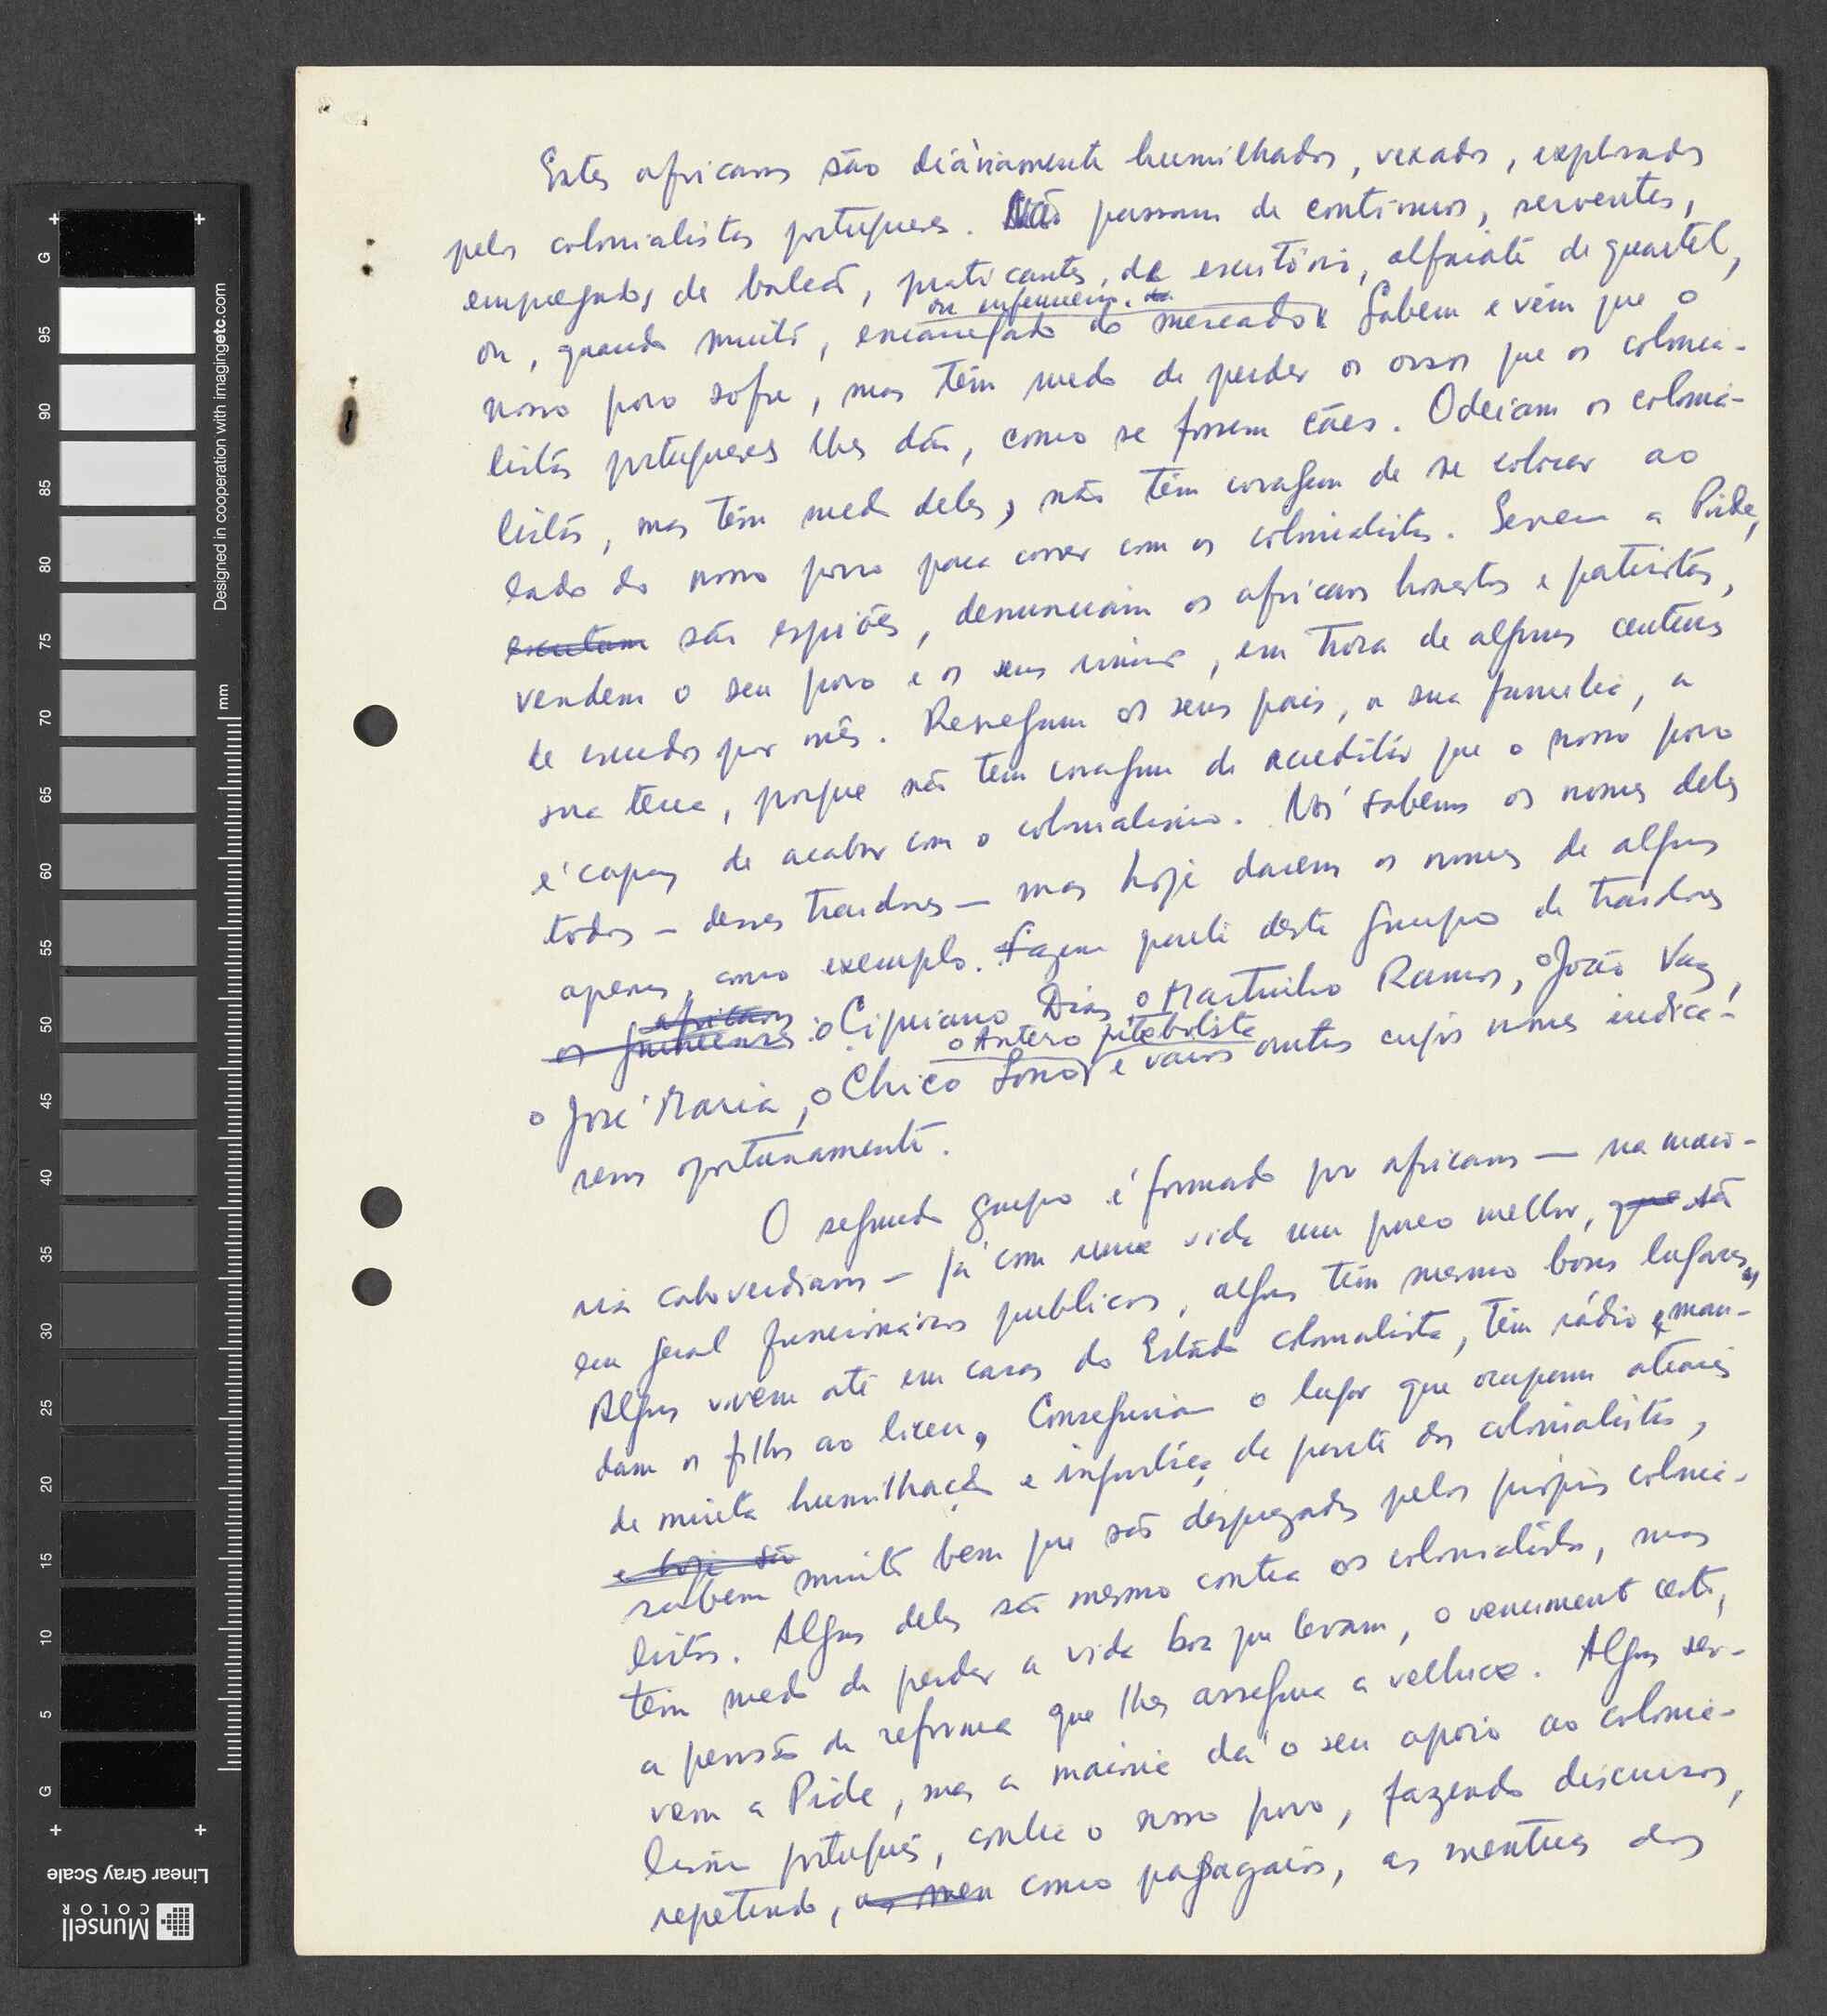 Estes africanos são diàriamente humilhados, vexados, explorados
pelos colonialistas portugueses. Não passam de continuos, serventes,
empregados de balcão, praticantes de escritório, alfaiate de quartel,
ou enfermeiro
ou, quando muito, encarregado do mercado. Sabem e vêm que o
nosso povo sofre, mas têm medo de perder os ossos que os colonia-
listas portugueses lhes dão, como se fossem cães. Odeiam os colonia-
listas, mas têm medo deles, não têm coragem de se colocar ao
lado do nosso povo para correr com os colonialistas. Servem a Pide,
escutam são espiões, denunciam os africanos honestos e patriotas,
vendem o seu povo e os seus irmãos, em troca de algumas centenas
de escudos por mês. Renegam os seus pais, a sua familia, a
sua terra, porque não têm coragem de acreditar que o nosso povo
é capaz de acabar com o colonialismo. Nós sabemos os nomes deles
todos — desses traidores — mas hoje daremos os nomes de alguns
apenas, como exemplo. Fazem parte deste grupo de traidores
africanos
os guineenses: o Cipriano Dias, o Martinho Ramos, o João Vaz,
o Antero futebolista
o José Maria, o Chico Sono e varios outros cujos nomes indica-
remos oportunamente.
O segundo grupo é formado por africanos — na maio-
ria caboverdianos — já com uma vida um pouco melhor, que são
em geral funcionários publicos, alguns têm mesmo bons lugares.
Alguns vivem até em casas do Estado colonialista, têm rádio e man-
dam os filhos ao liceu. Conseguiram o lugar que ocupam através
de muita humilhação e injustiça da parte dos colonialistas,
e hoje são
sabem muito bem que são desprezados pelos próprios colonia-
listas. Alguns deles são mesmo contra os colonialistas, mas
têm medo de perder a vida boa que levam, o vencimento certo,
a pensão de reforma que lhes assegura a velhice. Alguns ser-
vem a Pide, mas a maioria dá o seu apoio ao colonia-
lismo português, contra o nosso povo, fazendo discursos,
repetindo, as men como papagaios, as mentiras dos
G
95
90
85
80
75
70
65
60
55
50
45
40
35
30
25
20
15
10
5
G
mm
Designed in cooperation with imagingetc.com
Linear Gray Scale
Munsell
COLOR